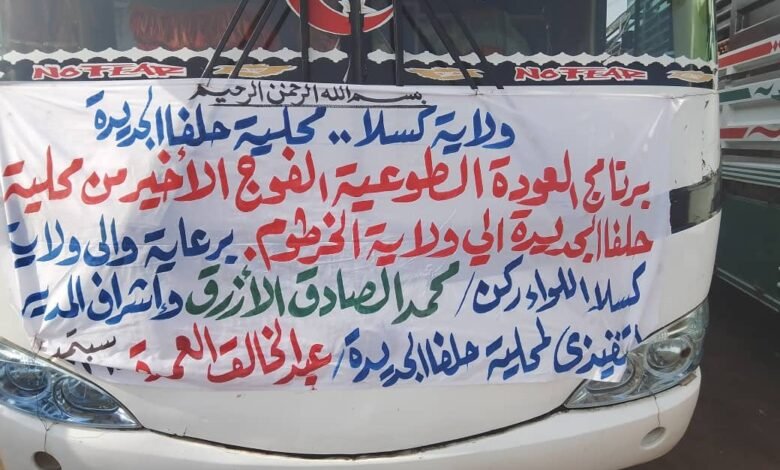 NO FEAR
NO FEAR
بسم الله الرحمن الرحيم
ولاية كسلا .. محلية حلفا الجديدة
برنامج العودة الطوعية الفوج الأخير من محلية
حلفا الجديدة الي ولاية الخرطوم . برعاية والى ولاية
كسلا اللواء ركن / محمد الصادق الأزرق وأشراف المدير
التفيذى لمحلية حلفا الجديدة / عبد الخالق العمدة
سبتمبر